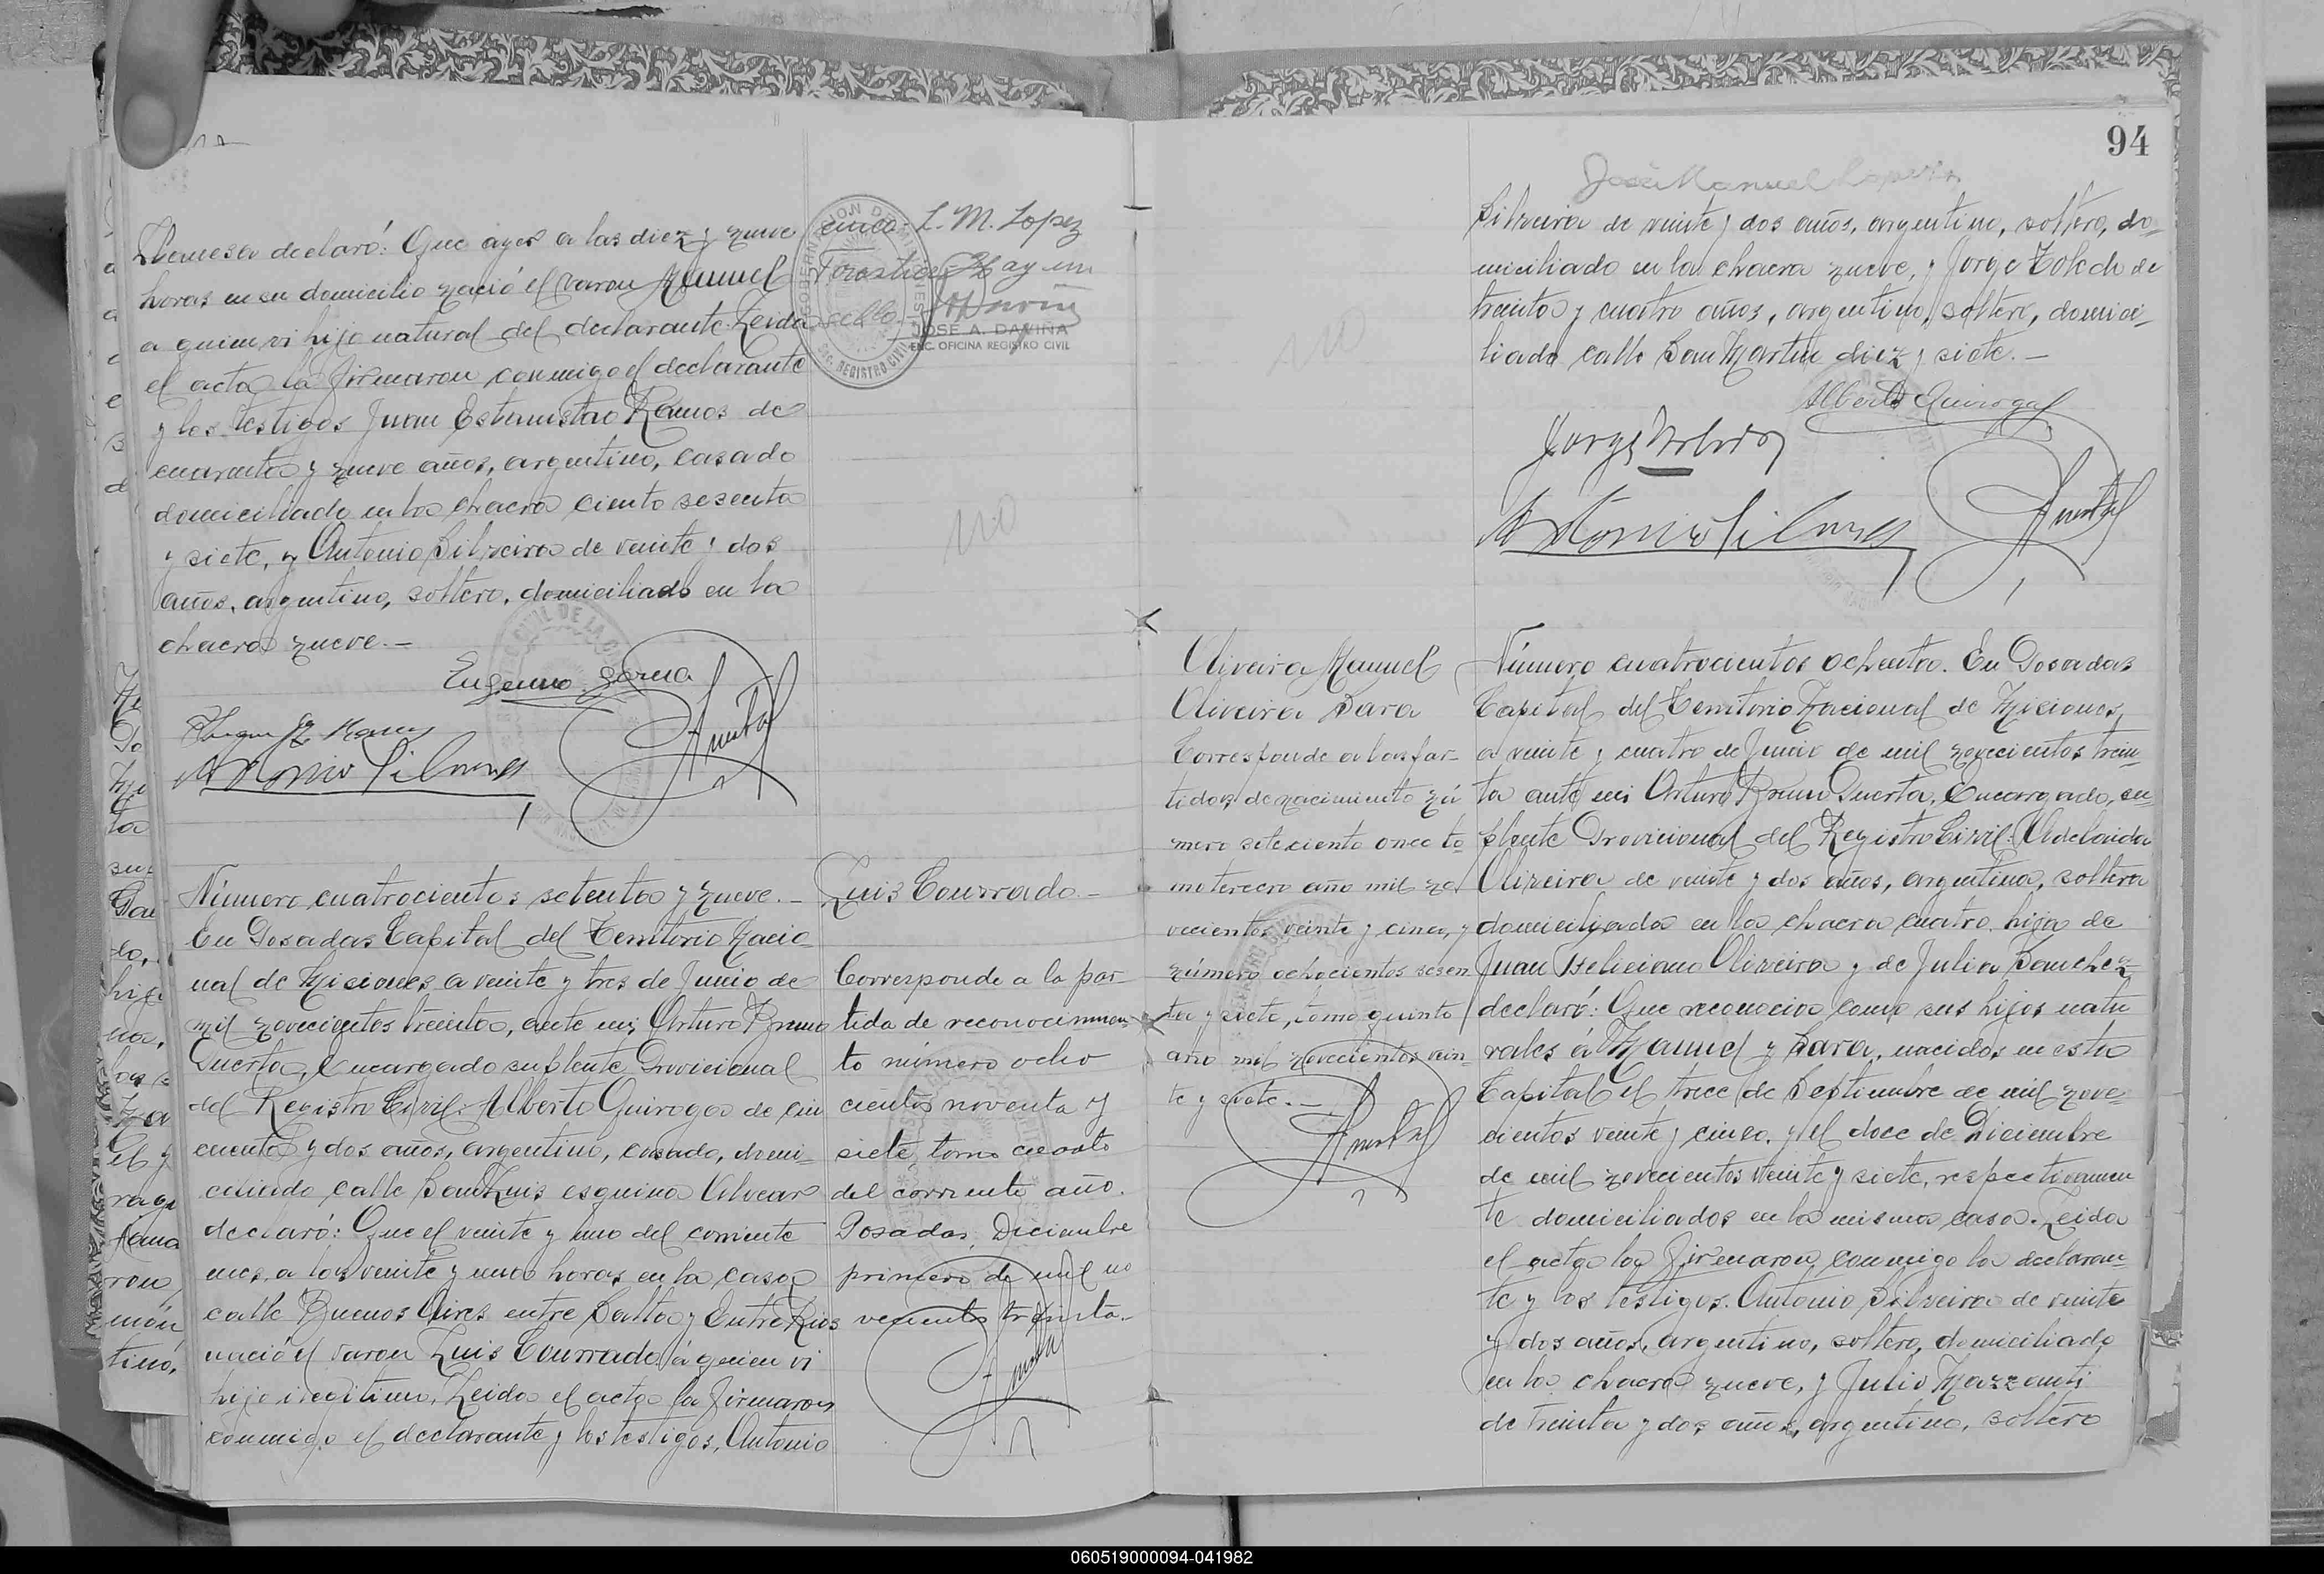 declaró: Que ayer a las diez y nueve
horas en su domicilio nació el varon Manuel
a quien vi hijo natural del declarante. Leida
el acta la firmaron conmigo el declarante
y los testigos Juan Estanislao Ramos de
cuarenta y nueve años, argentino, casado
domiciliado en la chacra ciento sesenta
y siete, y Antonio Silveira de veinte y dos
años, argentino, soltero, domiciliado en la
chacra nueve.-
Eugenio Garcia
L. M. Lopez
Hay un
sello
JOSÉ A. DAVIÑA
ENC. OFICINA REGISTRO CIVIL
Número cuatrocientos setenta y nueve.-
En Posadas Capital del Territorio Nacio-
nal de Misiones a veinte y tres de Junio de
mil novecientos treinta, ante mi, Arturo Bruno
Puerta, Encargado suplente Provicional
del Registro Civil: Alberto Quiroga de cin
cuenta y dos años, argentino, casado, domi-
ciliado calle San Luis esquina Alvear
declaró: Que el veinte y uno del corriente
mes, a las veinte y una horas en la casa
calle Buenos Aires entre Salta y Entre Rios
nació el varon Luis Conrrado á quien vi
hijo ilegitimo. Leida el acta la firmaron
conmigo el declarante y los testigos, Antonio
Luis Conrrado.-
Corresponde a la par-
tida de reconocimien-
to número ocho
cientos noventa y
siete tomo cuarto
del corriente año.
Posadas, Diciembre
primero de mil no
vecientos treinta.-
94
José Manuel
Silveira de veinte y dos años, argentino, soltero, do-
miciliado en la chacra nueve, y Jorge Toledo de
treinta y cuatro años, argentino, soltero, domici-
liado calle San Martin diez y siete.-
Alberto Quiroga
Oliveira Manuel
Oliveira Sara
Corresponde a las par-
tidas de nacimiento nú
mero setecientos once to-
mo tercero año mil no
vecientos veinte y cinco, y
número ochocientos sesen
ta y siete, tomo quinto
año mil novecientos vein-
te y siete.-
Número cuatrocientos ochenta. En Posadas
Capital del Territorio Nacional de Misiones,
a veinte y cuatro de Junio de mil novecientos trein-
ta ante mi Arturo Bruno Puerta, Encargado, su-
plente Provicional del Registro Civil: Adelaida
Oliveira de veinte y dos años, argentina, soltera
domiciliada en la chacra cuatro, hija de
Juan Feliciano Oliveira y de Julia Sanchez
declaró: Que reconocia como sus hijos natu
rales á Manuel y Sara, nacidos en esta
Capital el trece de Septiembre de mil nove-
cientos veinte y cinco, y el doce de Diciembre
de mil novecientos veinte y siete, respectivamen
te domiciliados en la misma casa. Leida
el acta la firmaron conmigo la declaran-
te y los testigos. Antonio Silveira de veinte
y dos años, argentino, soltero, domiciliado
en la chacra nueve, y Julio Mazzanti
de treinta y dos años, argentino, soltero
060519000094-041982